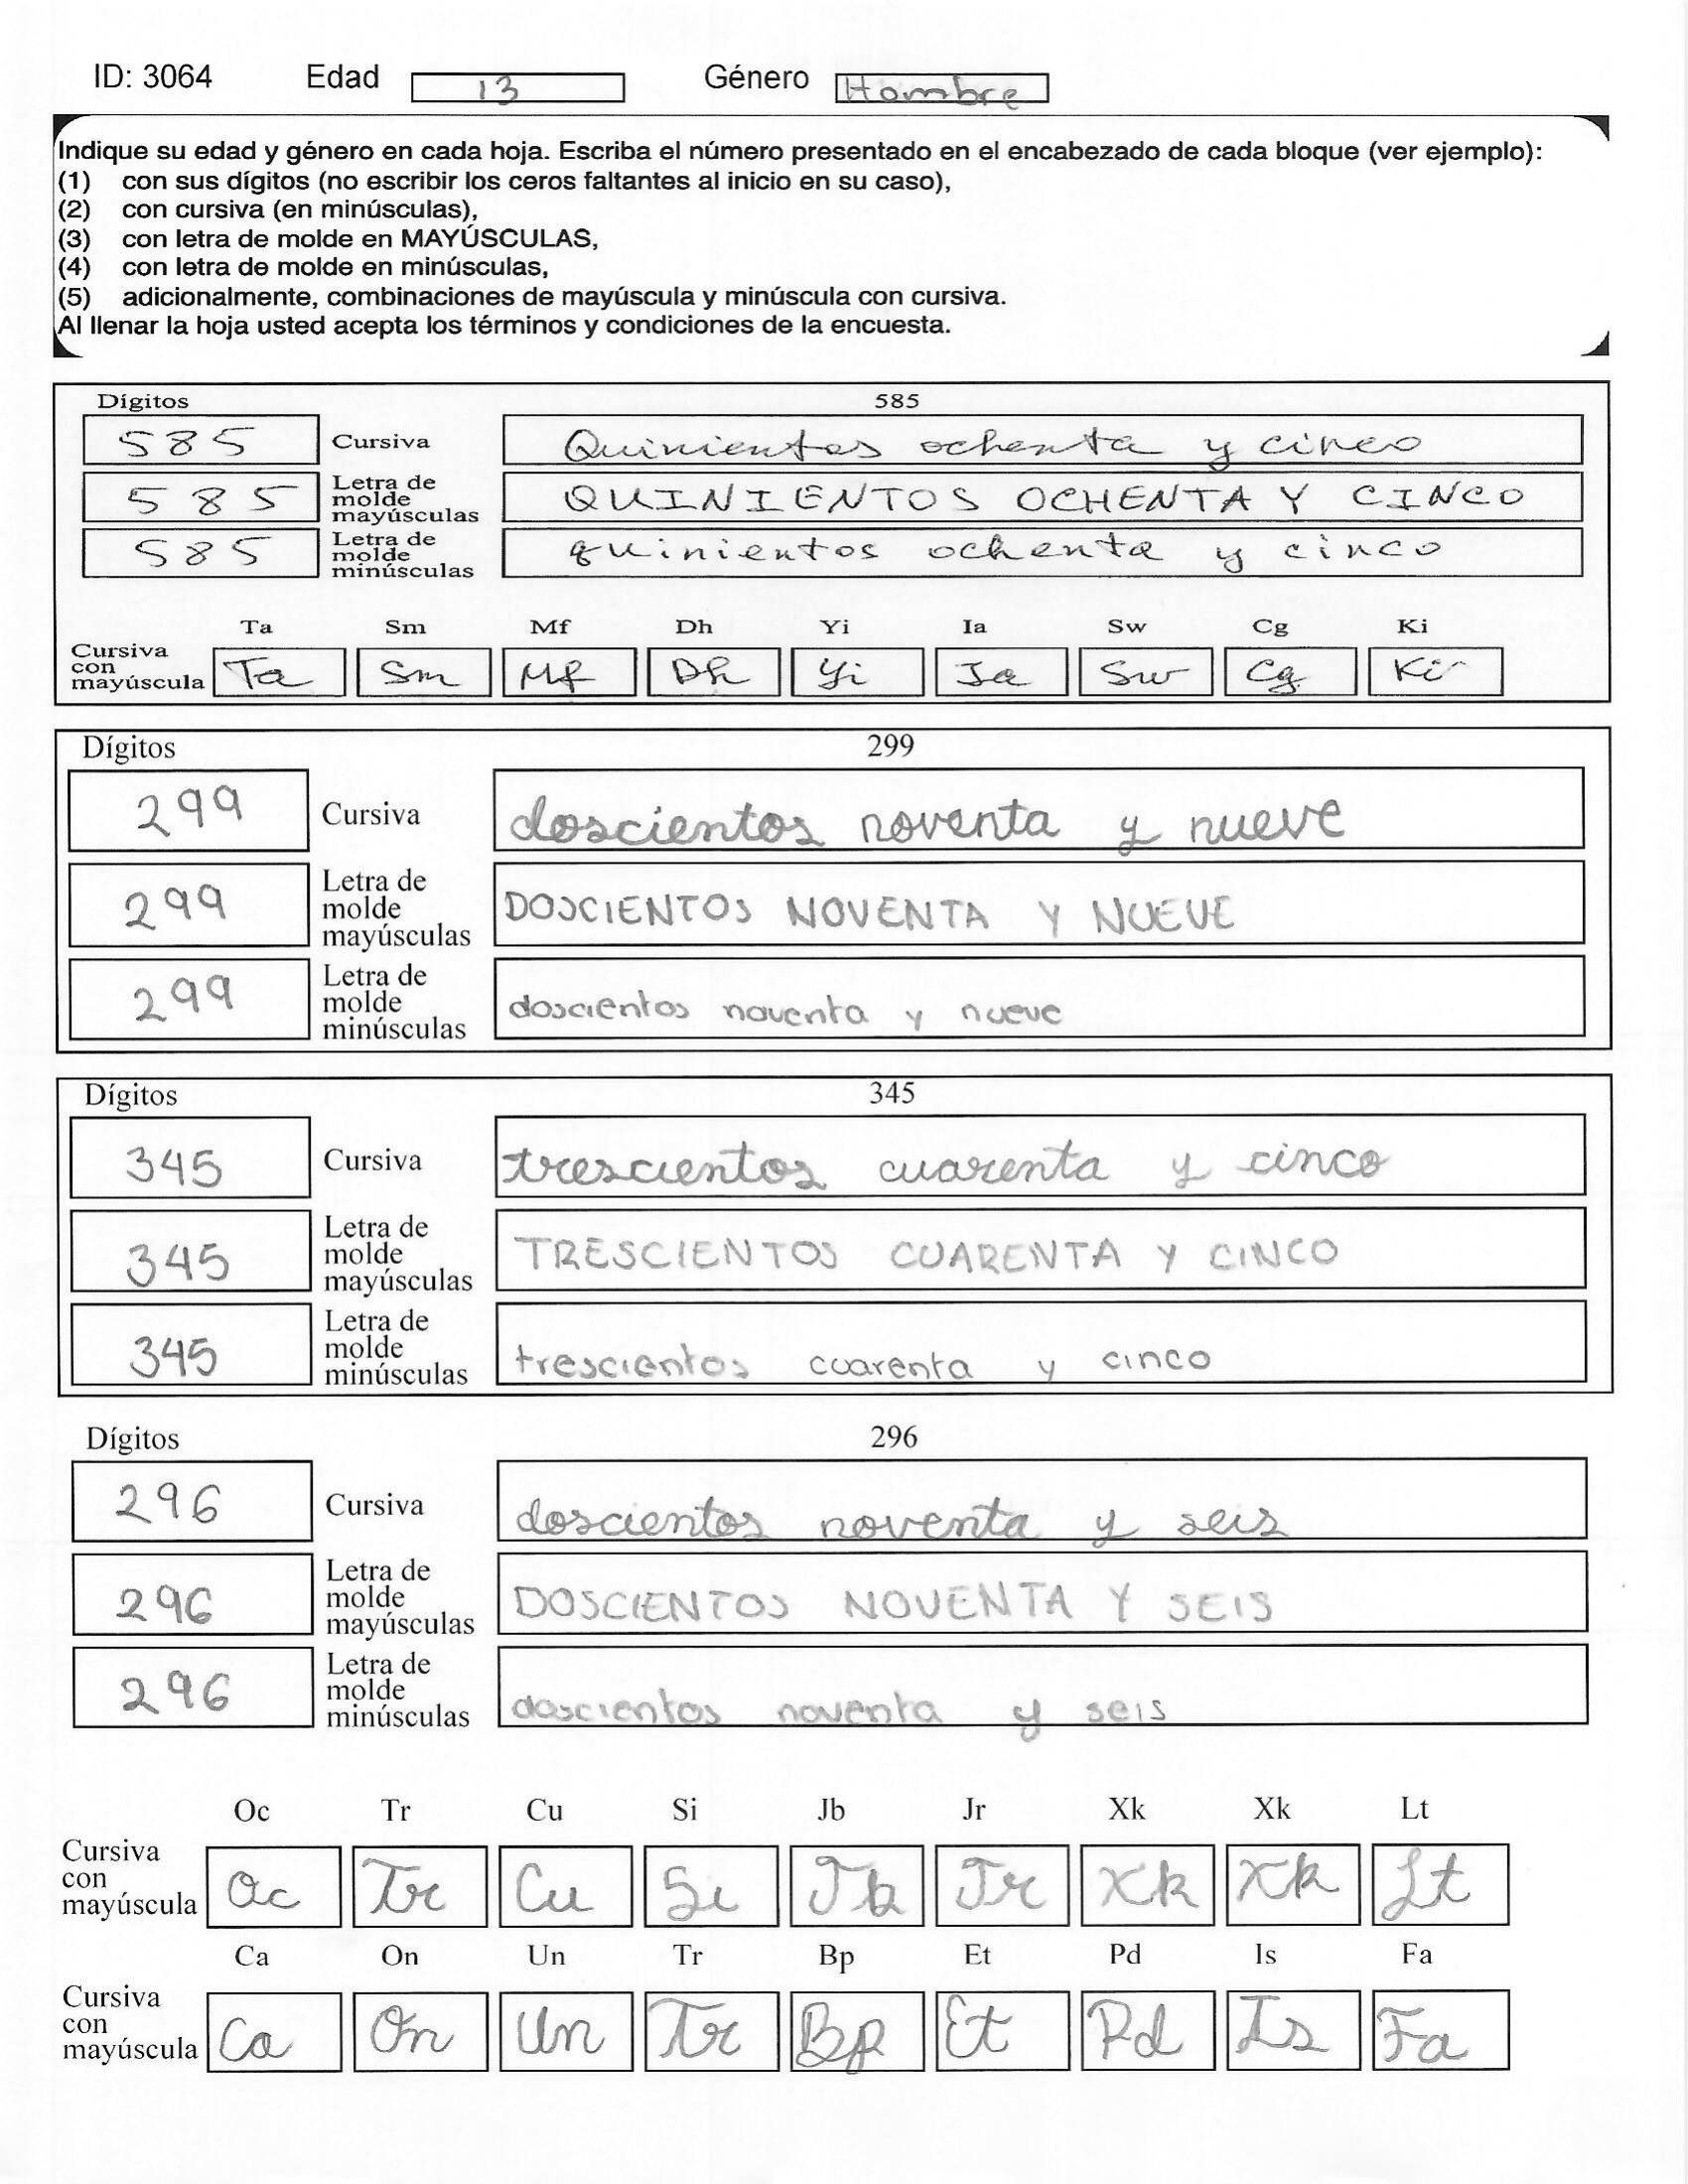 ID: 3064 Edad 13 Género Hombre
Indique su edad y género en cada hoja. Escriba el número presentado en el encabezado de cada bloque (ver ejemplo):
(1) con sus dígitos (no escribir los ceros faltantes al inicio en su caso),
(2) con cursiva (en minúsculas),
(3) con letra de molde en MAYÚSCULAS,
(4) con letra de molde en minúsculas,
(5) adicionalmente, combinaciones de mayúscula y minúscula con cursiva.
Al llenar la hoja usted acepta los términos y condiciones de la encuesta.
Dígitos 585
585 Cursiva Quinientos ochenta y cinco
585 Letra de molde mayúsculas QUINIENTOS OCHENTA Y CINCO
585 Letra de molde minúsculas quinientos ochenta y cinco
Ta Sm Mf Dh Yi Ia Sw Cg Ki
Cursiva con mayúscula Ta Sm Mf Dh Yi Ia Sw Cg Ki
Dígitos 299
299 Cursiva doscientos noventa y nueve
299 Letra de molde mayúsculas DOSCIENTOS NOVENTA Y NUEVE
299 Letra de molde minúsculas doscientos noventa y nueve
Dígitos 345
345 Cursiva trescientos cuarenta y cinco
345 Letra de molde mayúsculas TRESCIENTOS CUARENTA Y CINCO
345 Letra de molde minúsculas trescientos cuarenta y cinco
Dígitos 296
296 Cursiva doscientos noventa y seis
296 Letra de molde mayúsculas DOSCIENTOS NOVENTA Y SEIS
296 Letra de molde minúsculas doscientos noventa y seis
Oc Tr Cu Si Jb Jr Xk Xk Lt
Cursiva con mayúscula Oc Tr Cu Si Jb Jr Xk Xk Lt
Ca On Un Tr Bp Et Pd Is Fa
Cursiva con mayúscula Ca On Un Tr Bp Et Pd Is Fa